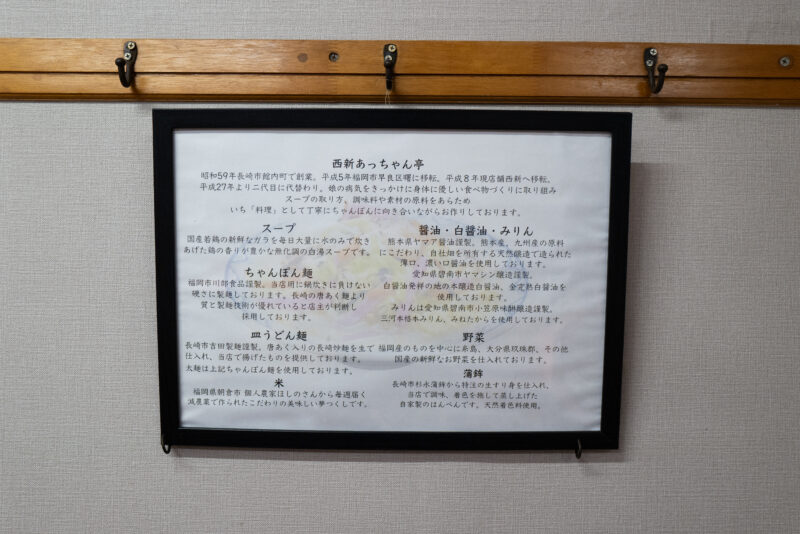 西新あっちゃん亭
昭和59年長崎市館内町で創業。平成5年福岡市早良区曙に移転、平成8年現店舗西新へ移転、
平成27年より二代目に代替わり。娘の病気をきっかけに身体に優しい食べ物づくりに取り組み
スープの取り方、調味料や素材の原料をあらため
いち「料理」として丁寧にちゃんぽんに向き合いながらお作りしております。
スープ
国産若鶏の新鮮なガラを毎日大量に水のみで炊き
あげた鶏の香りが豊かな無化調の白湯スープです。
ちゃんぽん麺
福岡市川部食品謹製。当店用に鍋炊きに負けない
硬さに製麺しております。長崎の唐あく麺より
質と製麺技術が優れていると店主が判断し
採用しております。
皿うどん麺
長崎市吉田製麺謹製。唐あく入りの長崎炒麺を生で
仕入れ、当店で揚げたものを提供しております。
太麺は上記ちゃんぽん麺を使用しております。
米
福岡県朝倉市 個人農家ほしのさんから毎週届く
減農薬で作られたこだわりの美味しい夢つくしです。
醤油・白醤油・みりん
熊本県ヤマア醤油謹製。熊本産、九州産の原料
にこだわり、自社畑を所有する天然醸造で造られた
薄口、濃い口醤油を使用しております。
愛知県碧南市ヤマシン醸造謹製。
白醤油発祥の地の本醸造白醤油、金定熟白醤油を
使用しております。
みりんは愛知県碧南市小笠原味醂醸造謹製。
三河本格本みりん、みねたからを使用しております。
野菜
福岡産のものを中心に糸島、大分県玖珠郡、その他
国産の新鮮なお野菜を仕入れております。
蒲鉾
長崎市杉永蒲鉾から特注の生すり身を仕入れ、
当店で調味、着色を施して蒸し上げた
自家製のはんぺんです。天然着色料使用。